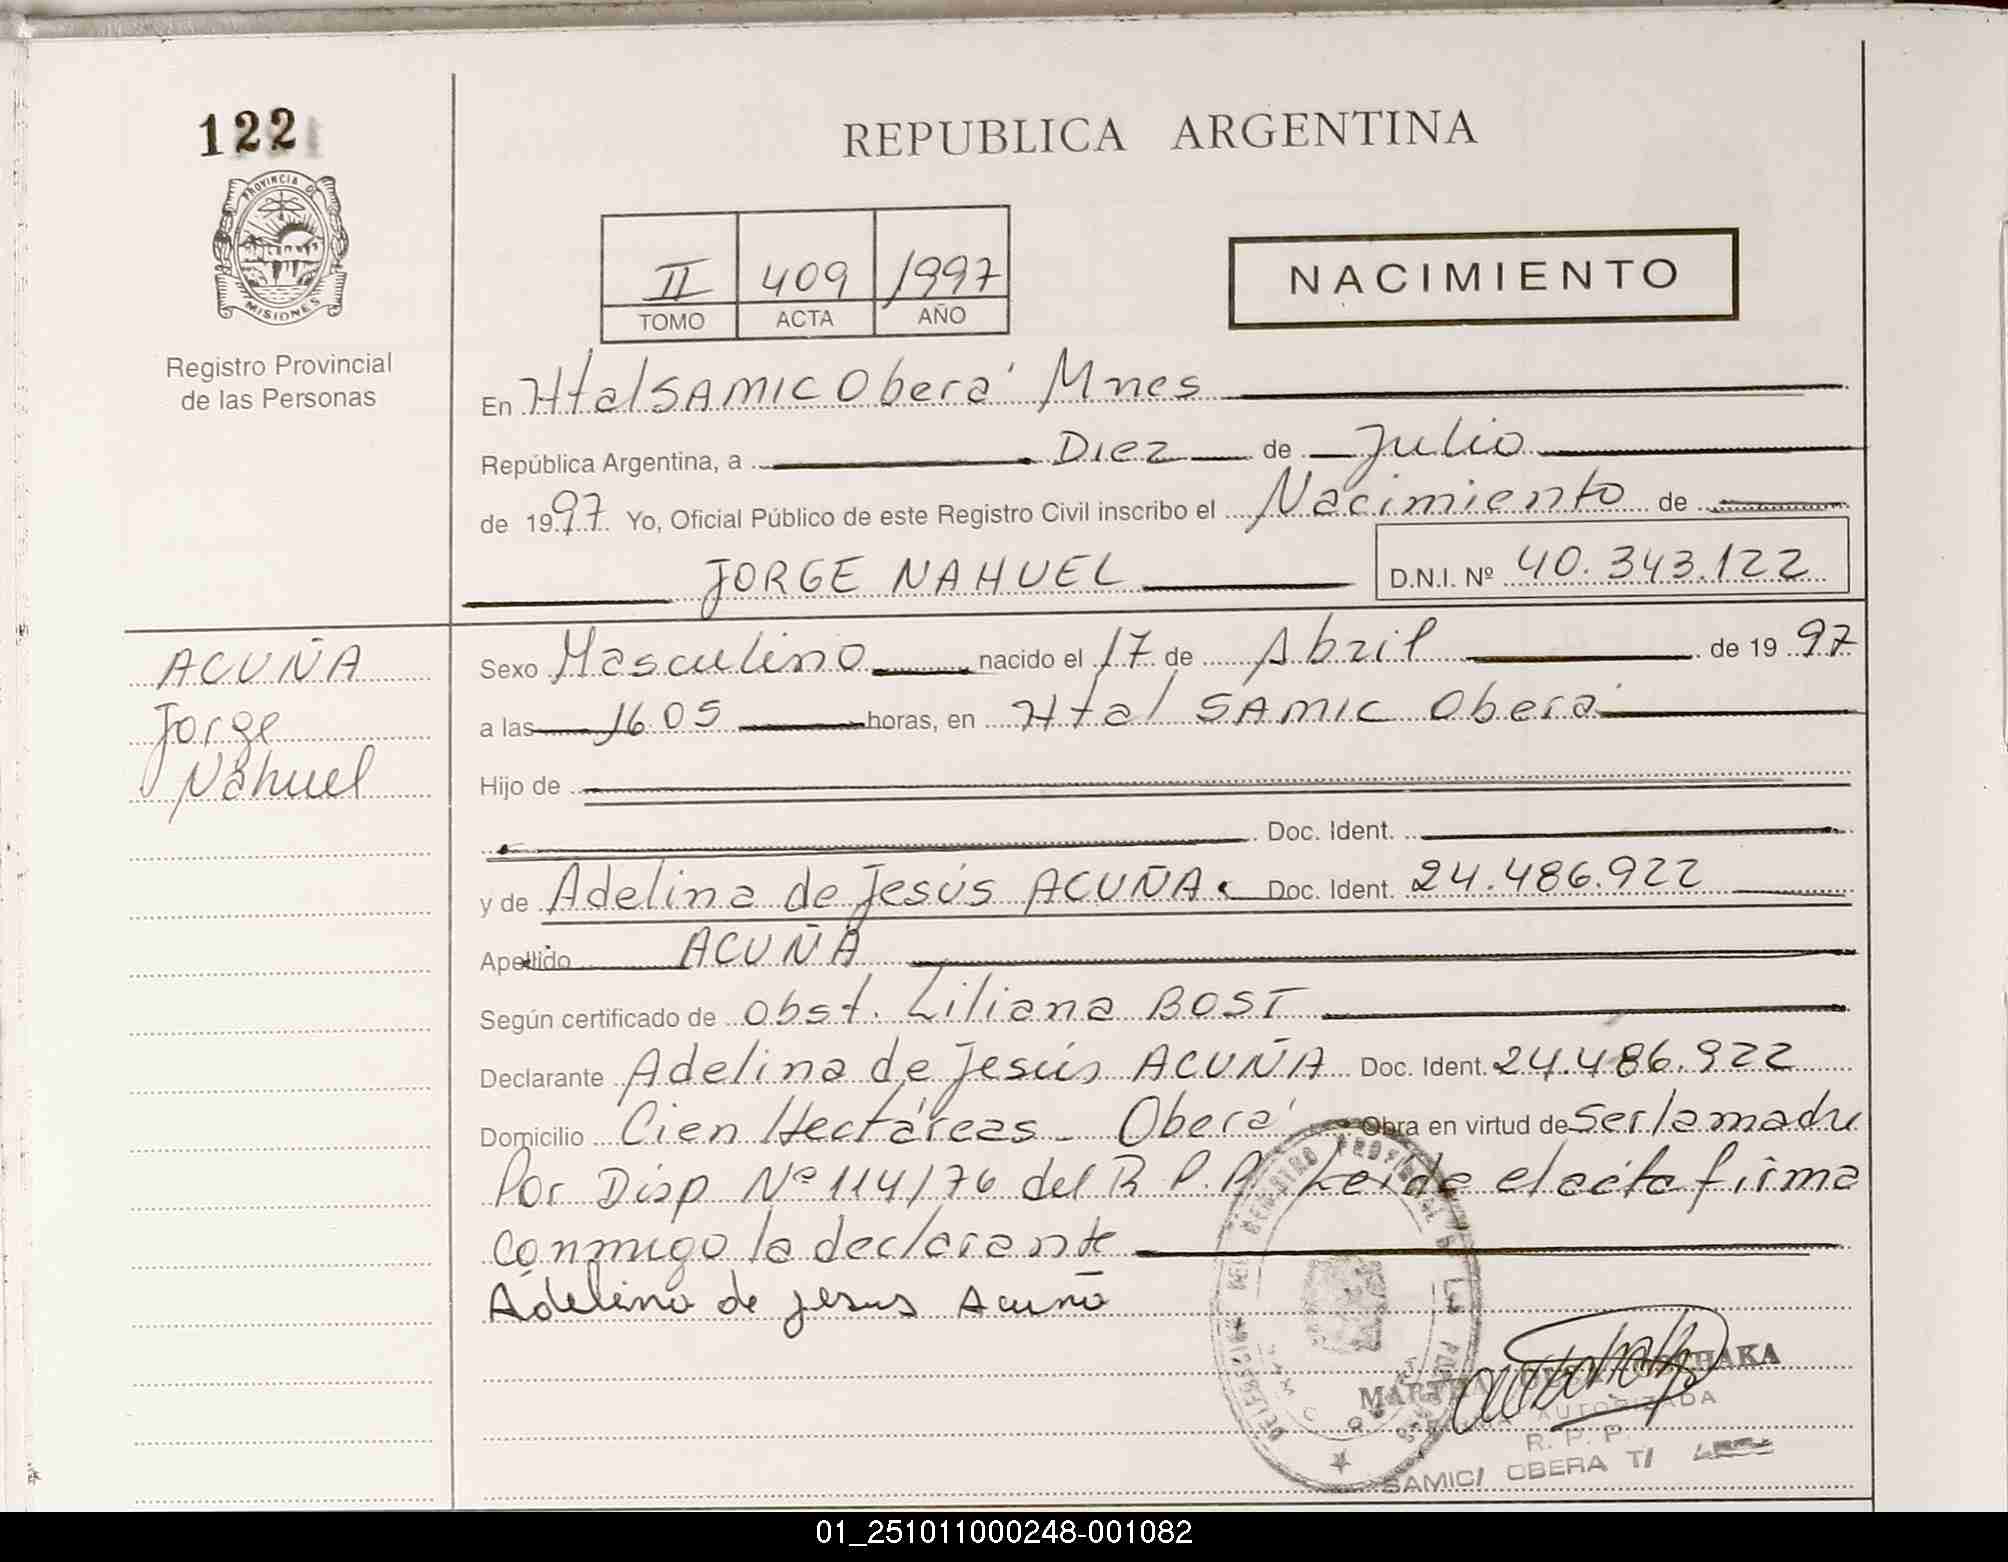 122
REPUBLICA ARGENTINA
PROVINCIA DE
MISIONES
Registro Provincial
de las Personas
II 409 1997
TOMO ACTA AÑO
NACIMIENTO
En Htal SAMIC Oberá Mnes
República Argentina, a Diez de Julio
de 1997 Yo, Oficial Público de este Registro Civil inscribo el Nacimiento de
JORGE NAHUEL D.N.I. Nº 40.343.122
ACUÑA
Jorge
Nahuel
Sexo Masculino nacido el 17 de Abril de 1997
a las 16 05 horas, en Htal SAMIC Oberá
Hijo de
Doc. Ident.
y de Adelina de Jesús ACUÑA. Doc. Ident. 24.486.922
Apellido ACUÑA
Según certificado de Obst. Liliana BOST
Declarante Adelina de Jesús ACUÑA Doc. Ident. 24.486.922
Domicilio Cien Hectáreas - Oberá Obra en virtud de Ser la madre
Por Disp Nº 114/76 del R.P.P. Leída el acta firma
conmigo la declarante
Adelina de Jesus Acuña
DELEGACION DEL REGISTRO PROVINCIAL DE LAS
MARTHA
AUTORIZADA
R. P. P.
SAMIC/ OBERA T/
01_251011000248-001082